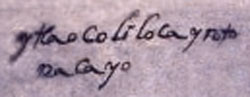 ytlaocoliloca yn toto
nacayo